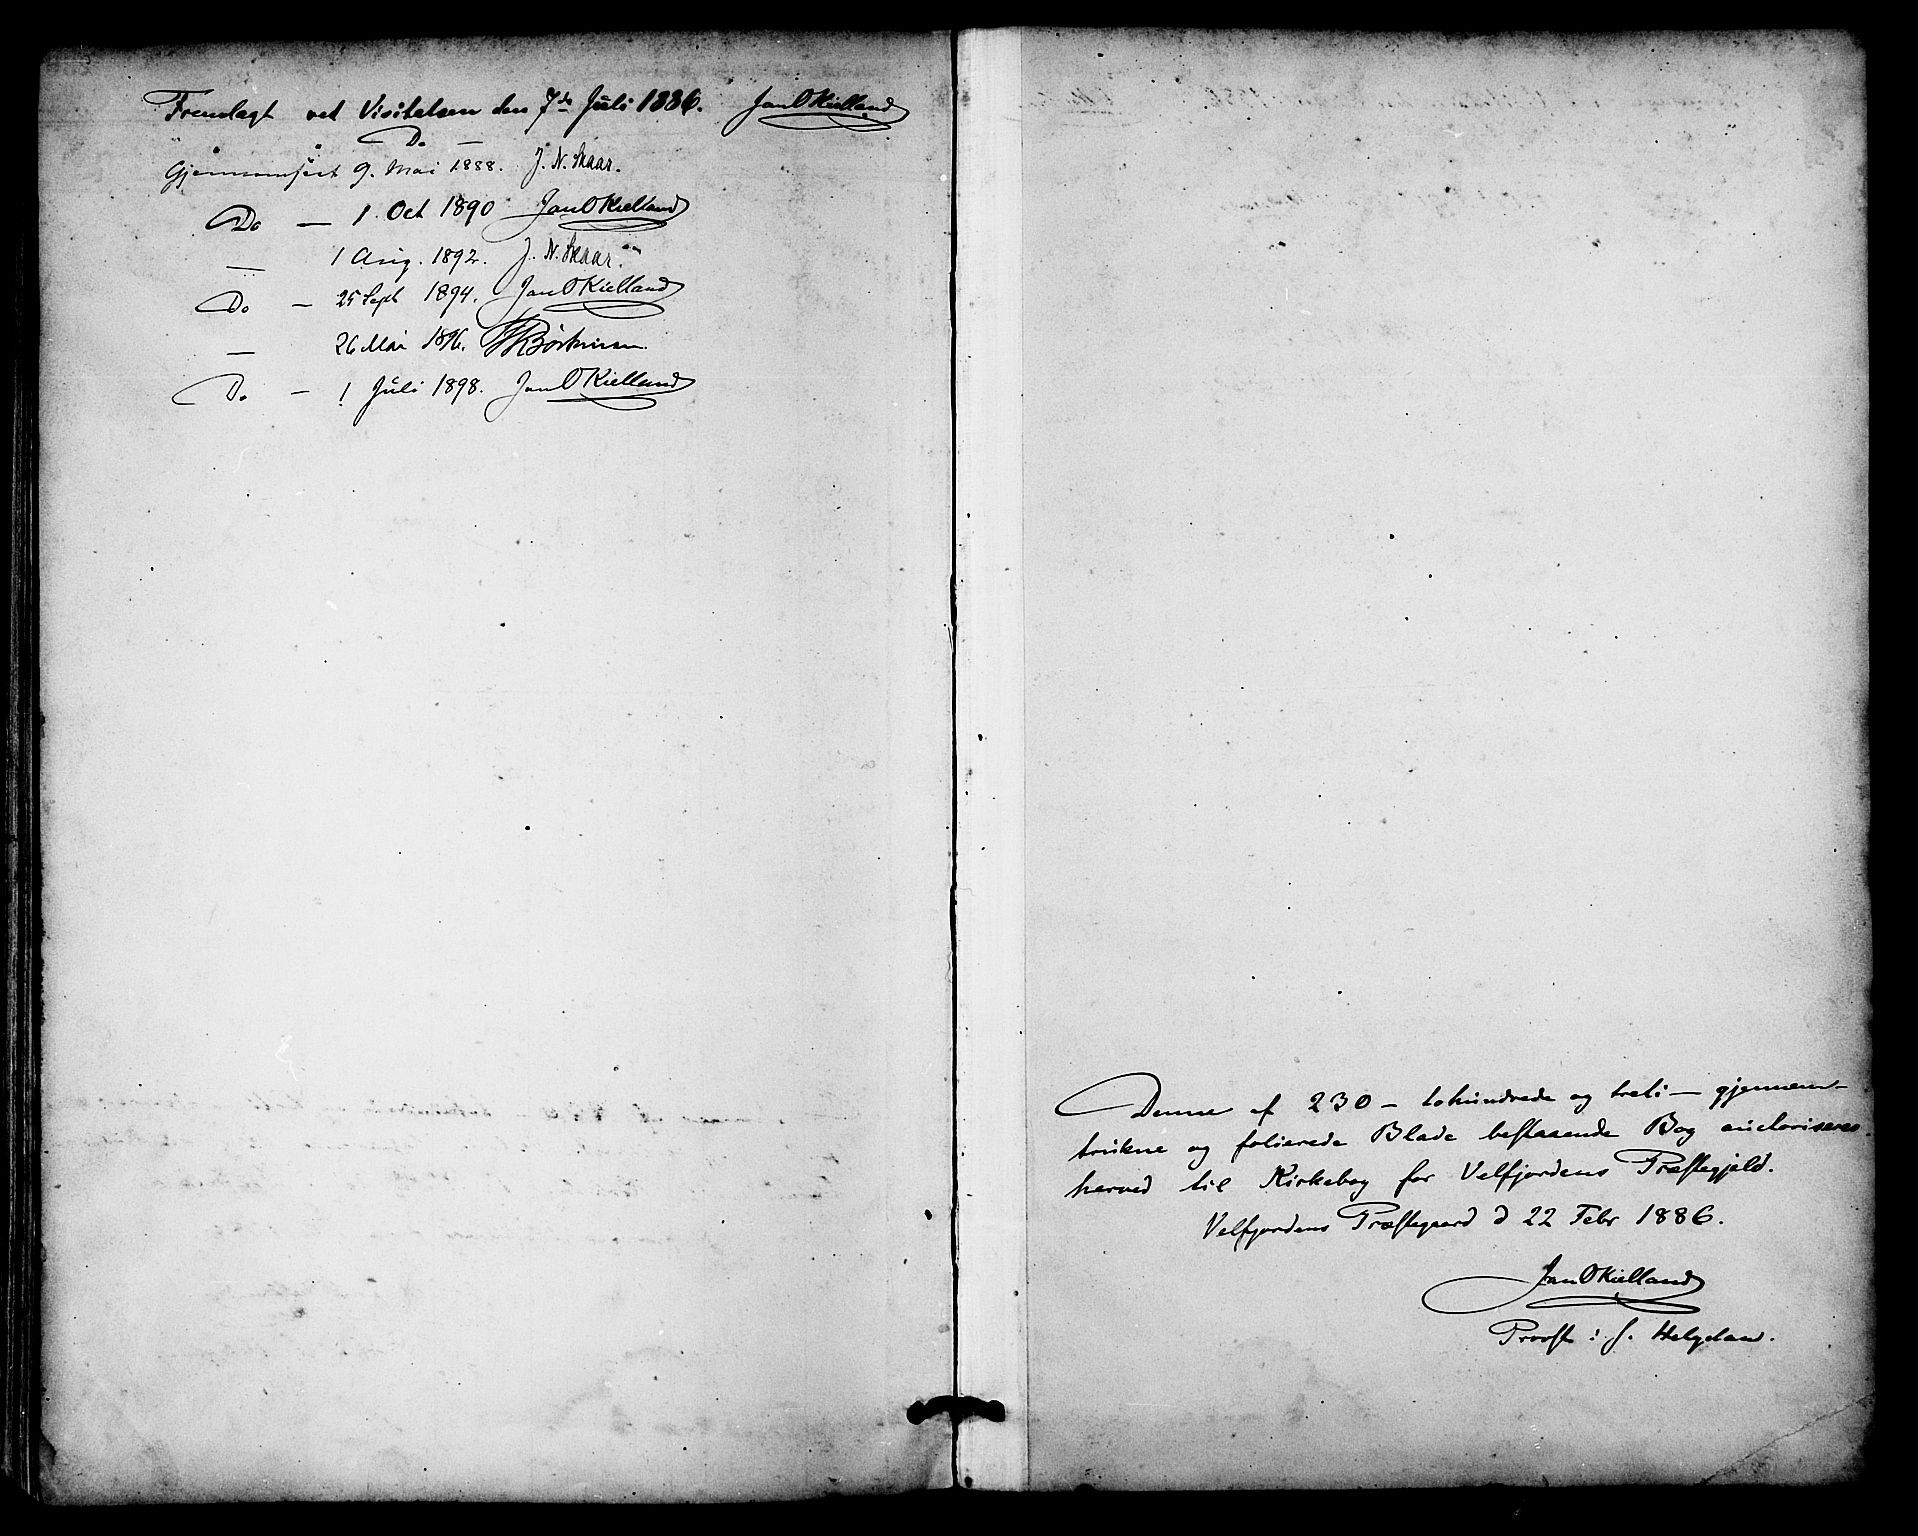 Fremlagt ved Visitatsen den 7de Juli 1886. Jan O Kielland
Do —
Gjennemseet 9. Mai 1888. J. N. Skaar.
Do — 1 Oct 1890 Jan O Kielland
— 1 Aug. 1892. J. N. Skaar.
Do — 25 Sept 1894. Jan O Kielland
— 26 Mai 1896.
Do — 1 Juli 1898. Jan O Kielland
Denne af 230 — tohundrede og treti — gjennem-
trukne og folierede Blade bestaaende Bog auctoriseres
herved til Kirkebog for Velfjordens Præstegjeld.
Velfjordens Præstegaard d 22 Febr 1886.
Jan O Kielland
Provst i S. Helgelan.